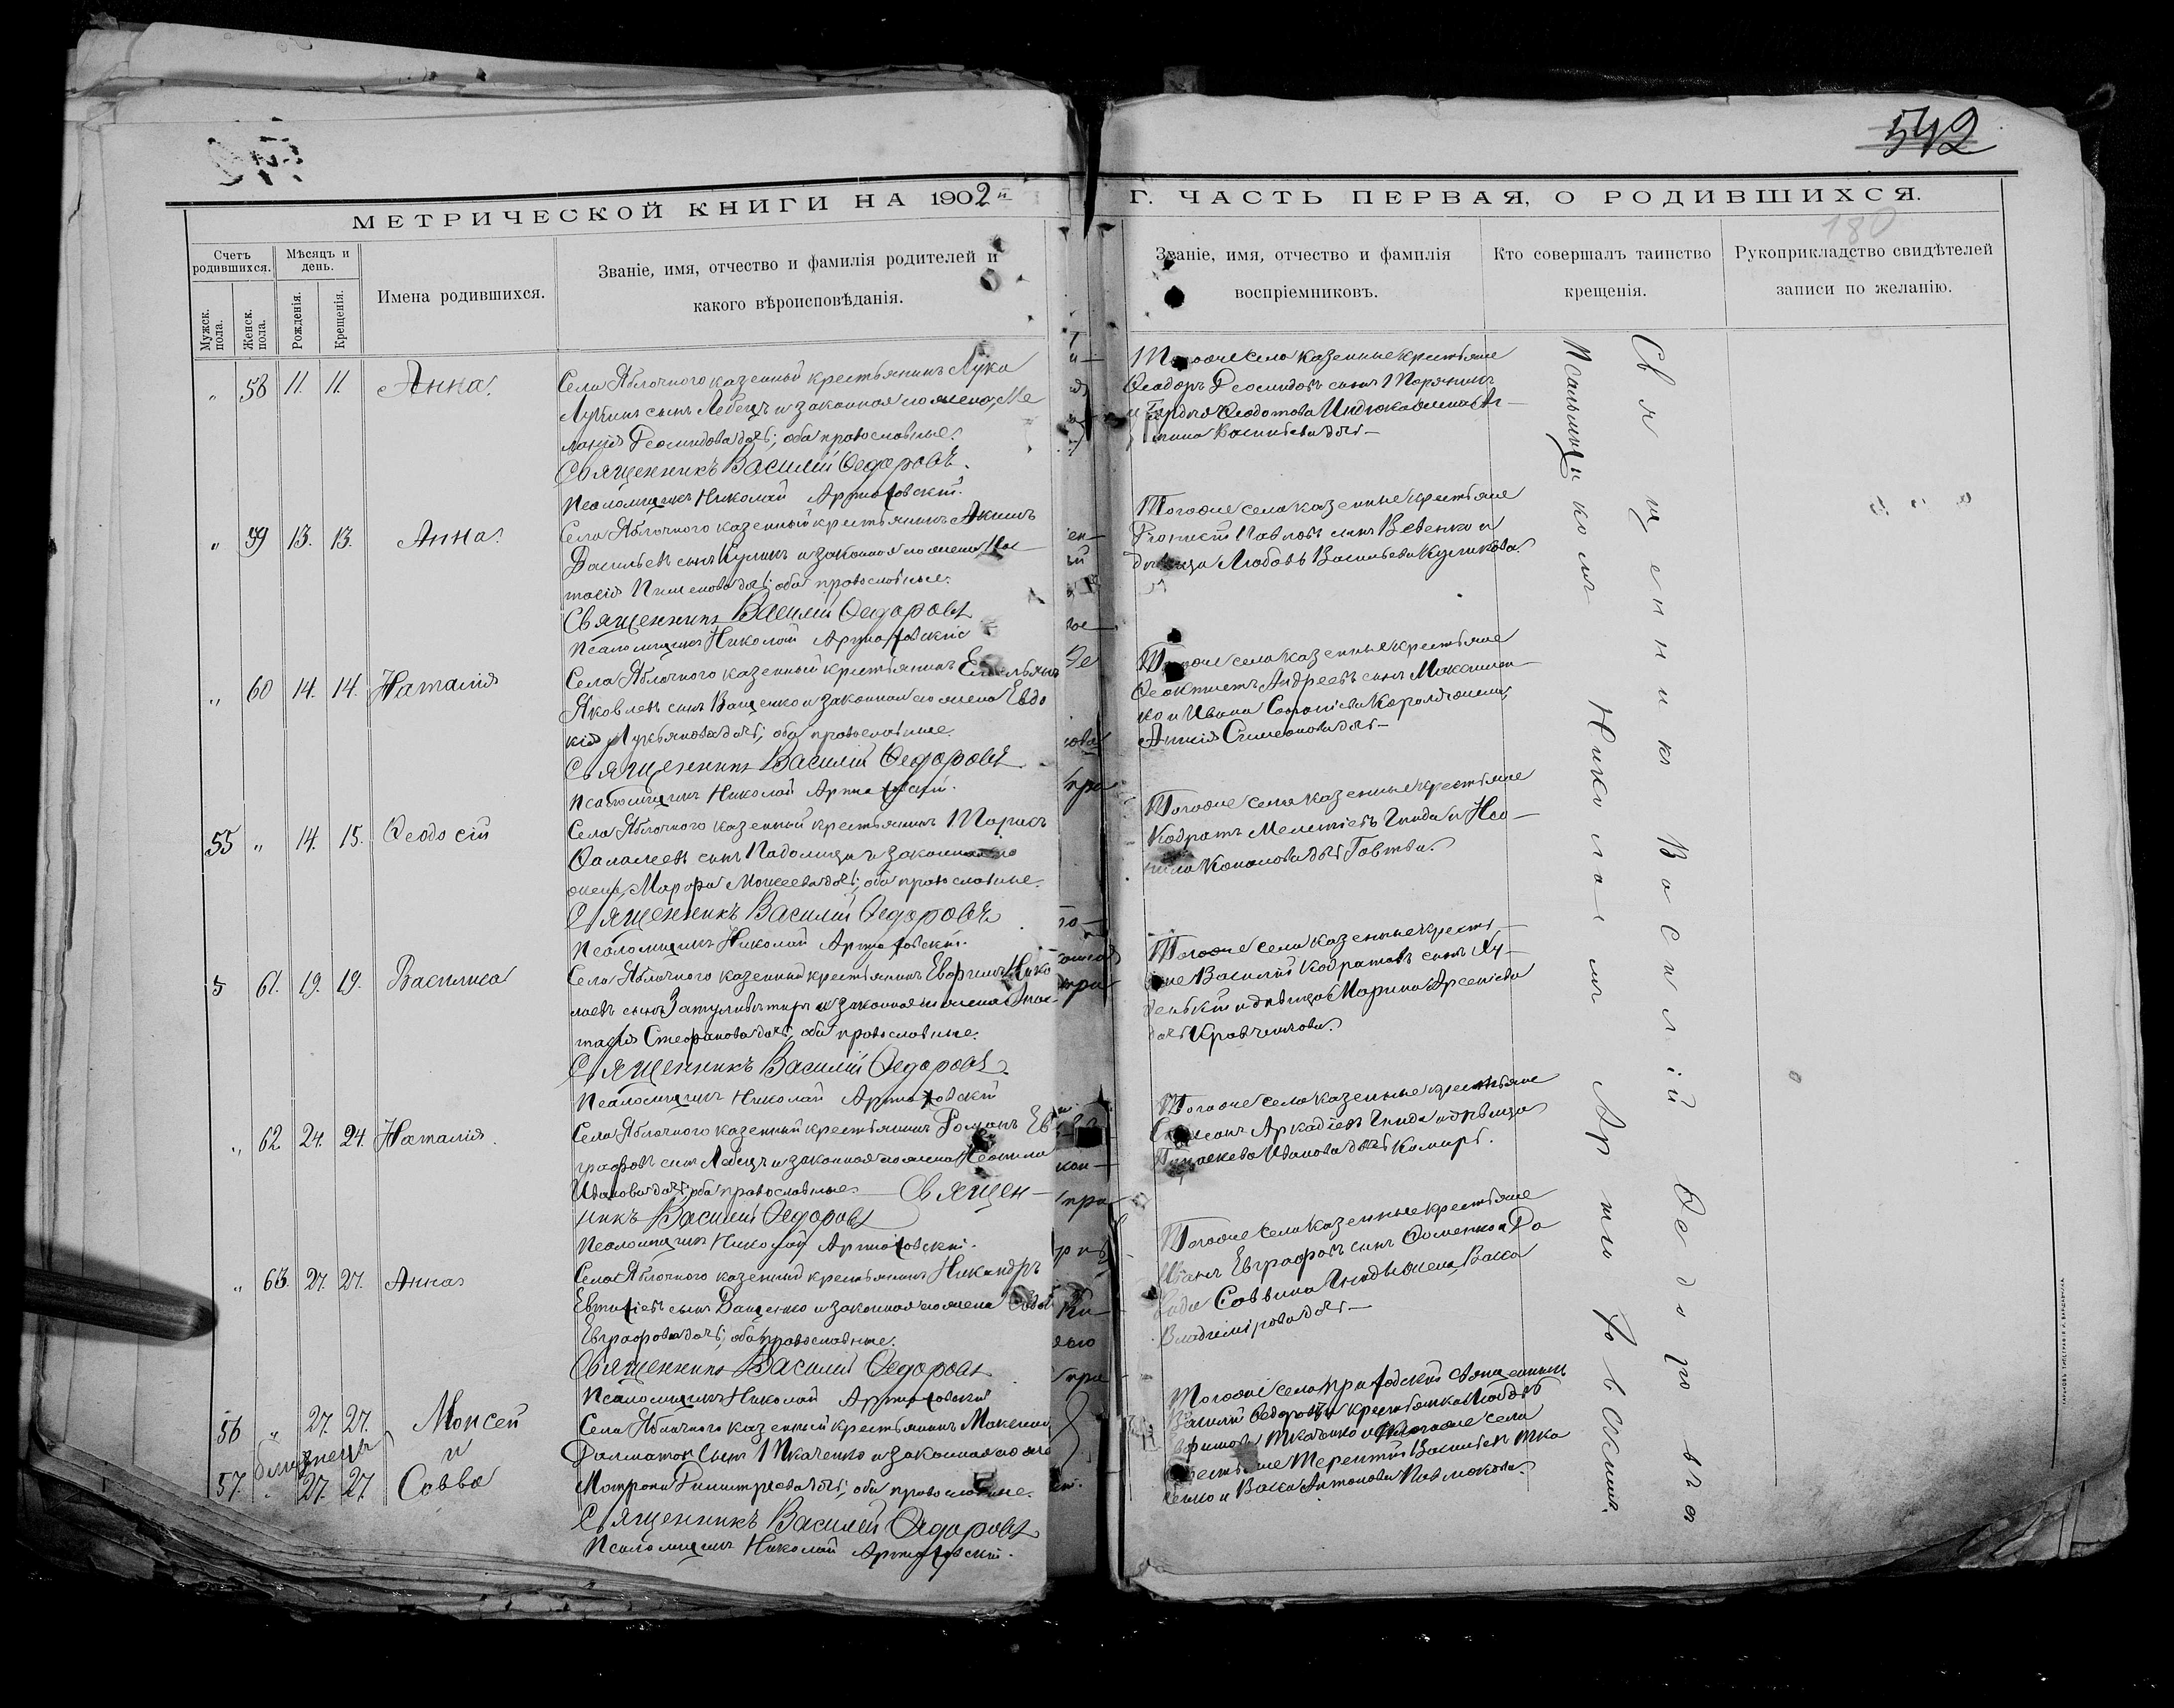 542
180
МЕТРИЧЕСКОЙ КНИГИ НА 1902 й
Г. ЧАСТЬ ПЕРВАЯ, О РОДИВШИХСЯ.
Счетъ родившихся.
Мѣсяцъ и день.
Мужск. пола.
Женск. пола.
Рожденія.
Крещенія.
Имена родившихся.
Званіе, имя, отчество и фамилія родителей и
какого вѣроисповѣданія.
Званіе, имя, отчество и фамилія
воспріемниковъ.
Кто совершалъ таинство
крещенія.
Рукоприкладство свидѣтелей
записи по желанію.
„ 58 11. 11. Анна.
Села Яблочного казенный крестьянинъ Лука
Лукинъ сынъ Лебедь и законная его жена, Ме
ланія Діомидова дочь; оба православные.
Священникъ Василій Ѳедоровъ.
Псаломщикъ Николай Артюховскій.
Того же села казенные крестьяне
Ѳеодоръ Діомидовъ сынъ
Васильева дочь
„ 59 13. 13. Анна.
Села Яблочного казенный крестьянинъ Акимъ
Васильевъ сынъ Куликъ и законная его жена, Нас
тасія Пименова дочь; оба православные.
Священникъ Василій Ѳедоровъ
Псаломщикъ Николай Артюховскій
Того же села казенные крестьяне
Павловъ сынъ Веденко и
дѣвица Любовь Васильева Куликова.
„ 60 14. 14. Наталія
Села Яблочного казенный крестьянинъ Емельянъ
Яковлевъ сынъ Ващенко и законная его жена Евдо
кія Лукьянова дочь; оба православные.
Священникъ Василій Ѳедоровъ
Псаломщикъ Николай Артюховскій.
Того же села казенные крестьяне
Ѳеоктистъ Андреевъ сынъ Максимен
ко и Ивана жена,
Симеонова дочь
55 „ 14. 15. Ѳеодосій
Села Яблочного казенный крестьянинъ Тарасъ
сынъ и законная его
жена, Марфа Мокеева дочь; оба православные.
Священникъ Василій Ѳедоровъ
Псаломщикъ Николай Артюховскій.
Того же села казенные крестьяне
Кодратъ Мелетіевъ Гнида и Нео
нила Кононова дочь
61. 19. 19. Василиса
Села Яблочного казенный крестьянинъ Евфимъ Нико
лаевъ сынъ и законная его жена Анас
тасія Стефанова дочь, оба православные.
Священникъ Василій Ѳедоровъ.
Псаломщикъ Николай Артюховскій
Того же села казенные крестья
не Василій Кодратовъ сынъ Ху
денькій и дѣвица Марина Арсеніева
дочь Кравченкова.
„ 62 24. 24. Наталія.
Села Яблочного казенный крестьянинъ Романъ Ев
графовъ сынъ Лебедь и законная его жена Неонила
Иванова дочь; оба православные. Священ
никъ Василій Ѳедоровъ
Псаломщикъ Николай Артюховскій.
Того же села казенные крестьяне
Симеонъ Аркадіевъ Гнида и дѣвица
Параскева Иванова дочь Комиръ.
„ 63. 27. 27. Анна
Села Яблочного казенный крестьянинъ Никандръ
Евтихіевъ сынъ Ващенко и законная его жена
Евграфова дочь; оба православные.
Священникъ Василій Ѳедоровъ
Псаломщикъ Николай Артюховскій
Того же села казенные крестьяне
Иванъ Евграфовъ сынъ Фоменко и Да
вида Саввина Гниды жена, Васса
Владимірова дочь
56 „ 27. 27. Моисей
близнецы и
57. „ 27. 27. Савва
Села Яблочного казенный крестьянинъ Максимъ
Далматовъ сынъ Ткаченко и законная его жена
Матрона Димитріева дочь; оба православные.
Священникъ Василій Ѳедоровъ
Псаломщикъ Николай Артюховскій.
Того же села приходскій священникъ
Василій Ѳедоровъ и крестьянка Любовь
Ефимова Ткаченко и того же села
крестьяне Терентій Васильевъ Тка
ченко и Васса Антонова Павлюкова.
Священникъ Василій Ѳедоровъ съ
Псаломщикомъ Николаемъ Артюховскимъ.